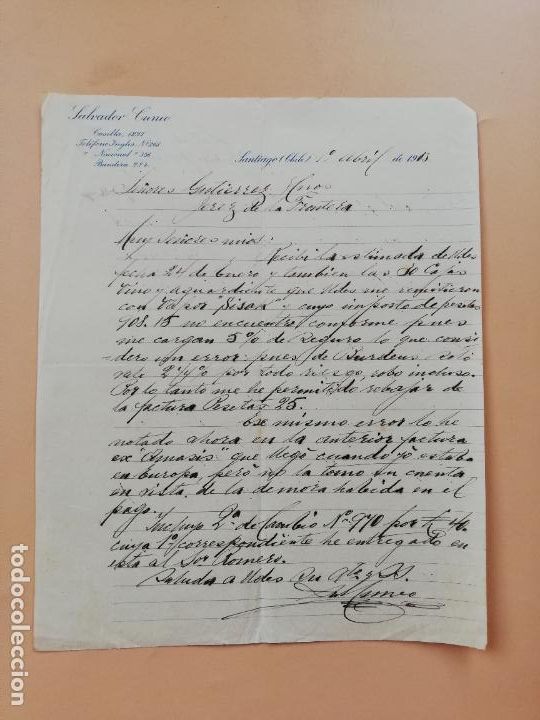 Salvador Cuneo
Casilla
Teléfono Inglés, Nº
" Nacional "
Bandera
Santiago (Chile) 1º Abril de 1915
Señores Gutierrez Hnos
Jerez de la Frontera
Muy Señores mios:
Recibi la estimada de Udes
fecha 24 de Enero y tambien las 30 Cajas
Vino y aguardiente que Udes me remitieron
con Vapor y cuyo importe de pesetas
708.15 no encuentro conforme pues
me cargan 5% de seguro lo que consi
-dero un error: pues de Burdeos solo
vale por todo riesgo, robo incluso.
Por lo tanto me he permitido rebajar de
la factura Pesetas 25.
Ese mismo error lo he
notado ahora en la anterior factura
ex "Amasis" que llegó cuando yo estaba
en Europa, pero no la tomo en cuenta
en vista de la demora habida en el
pago.
Incluyo 2ª de Cambio Nº 970 por
cuya 1ª correspondiente he entregado en
esta al Sor Romero.
Saluda a Udes
Sal Cuneo
todocoleccion